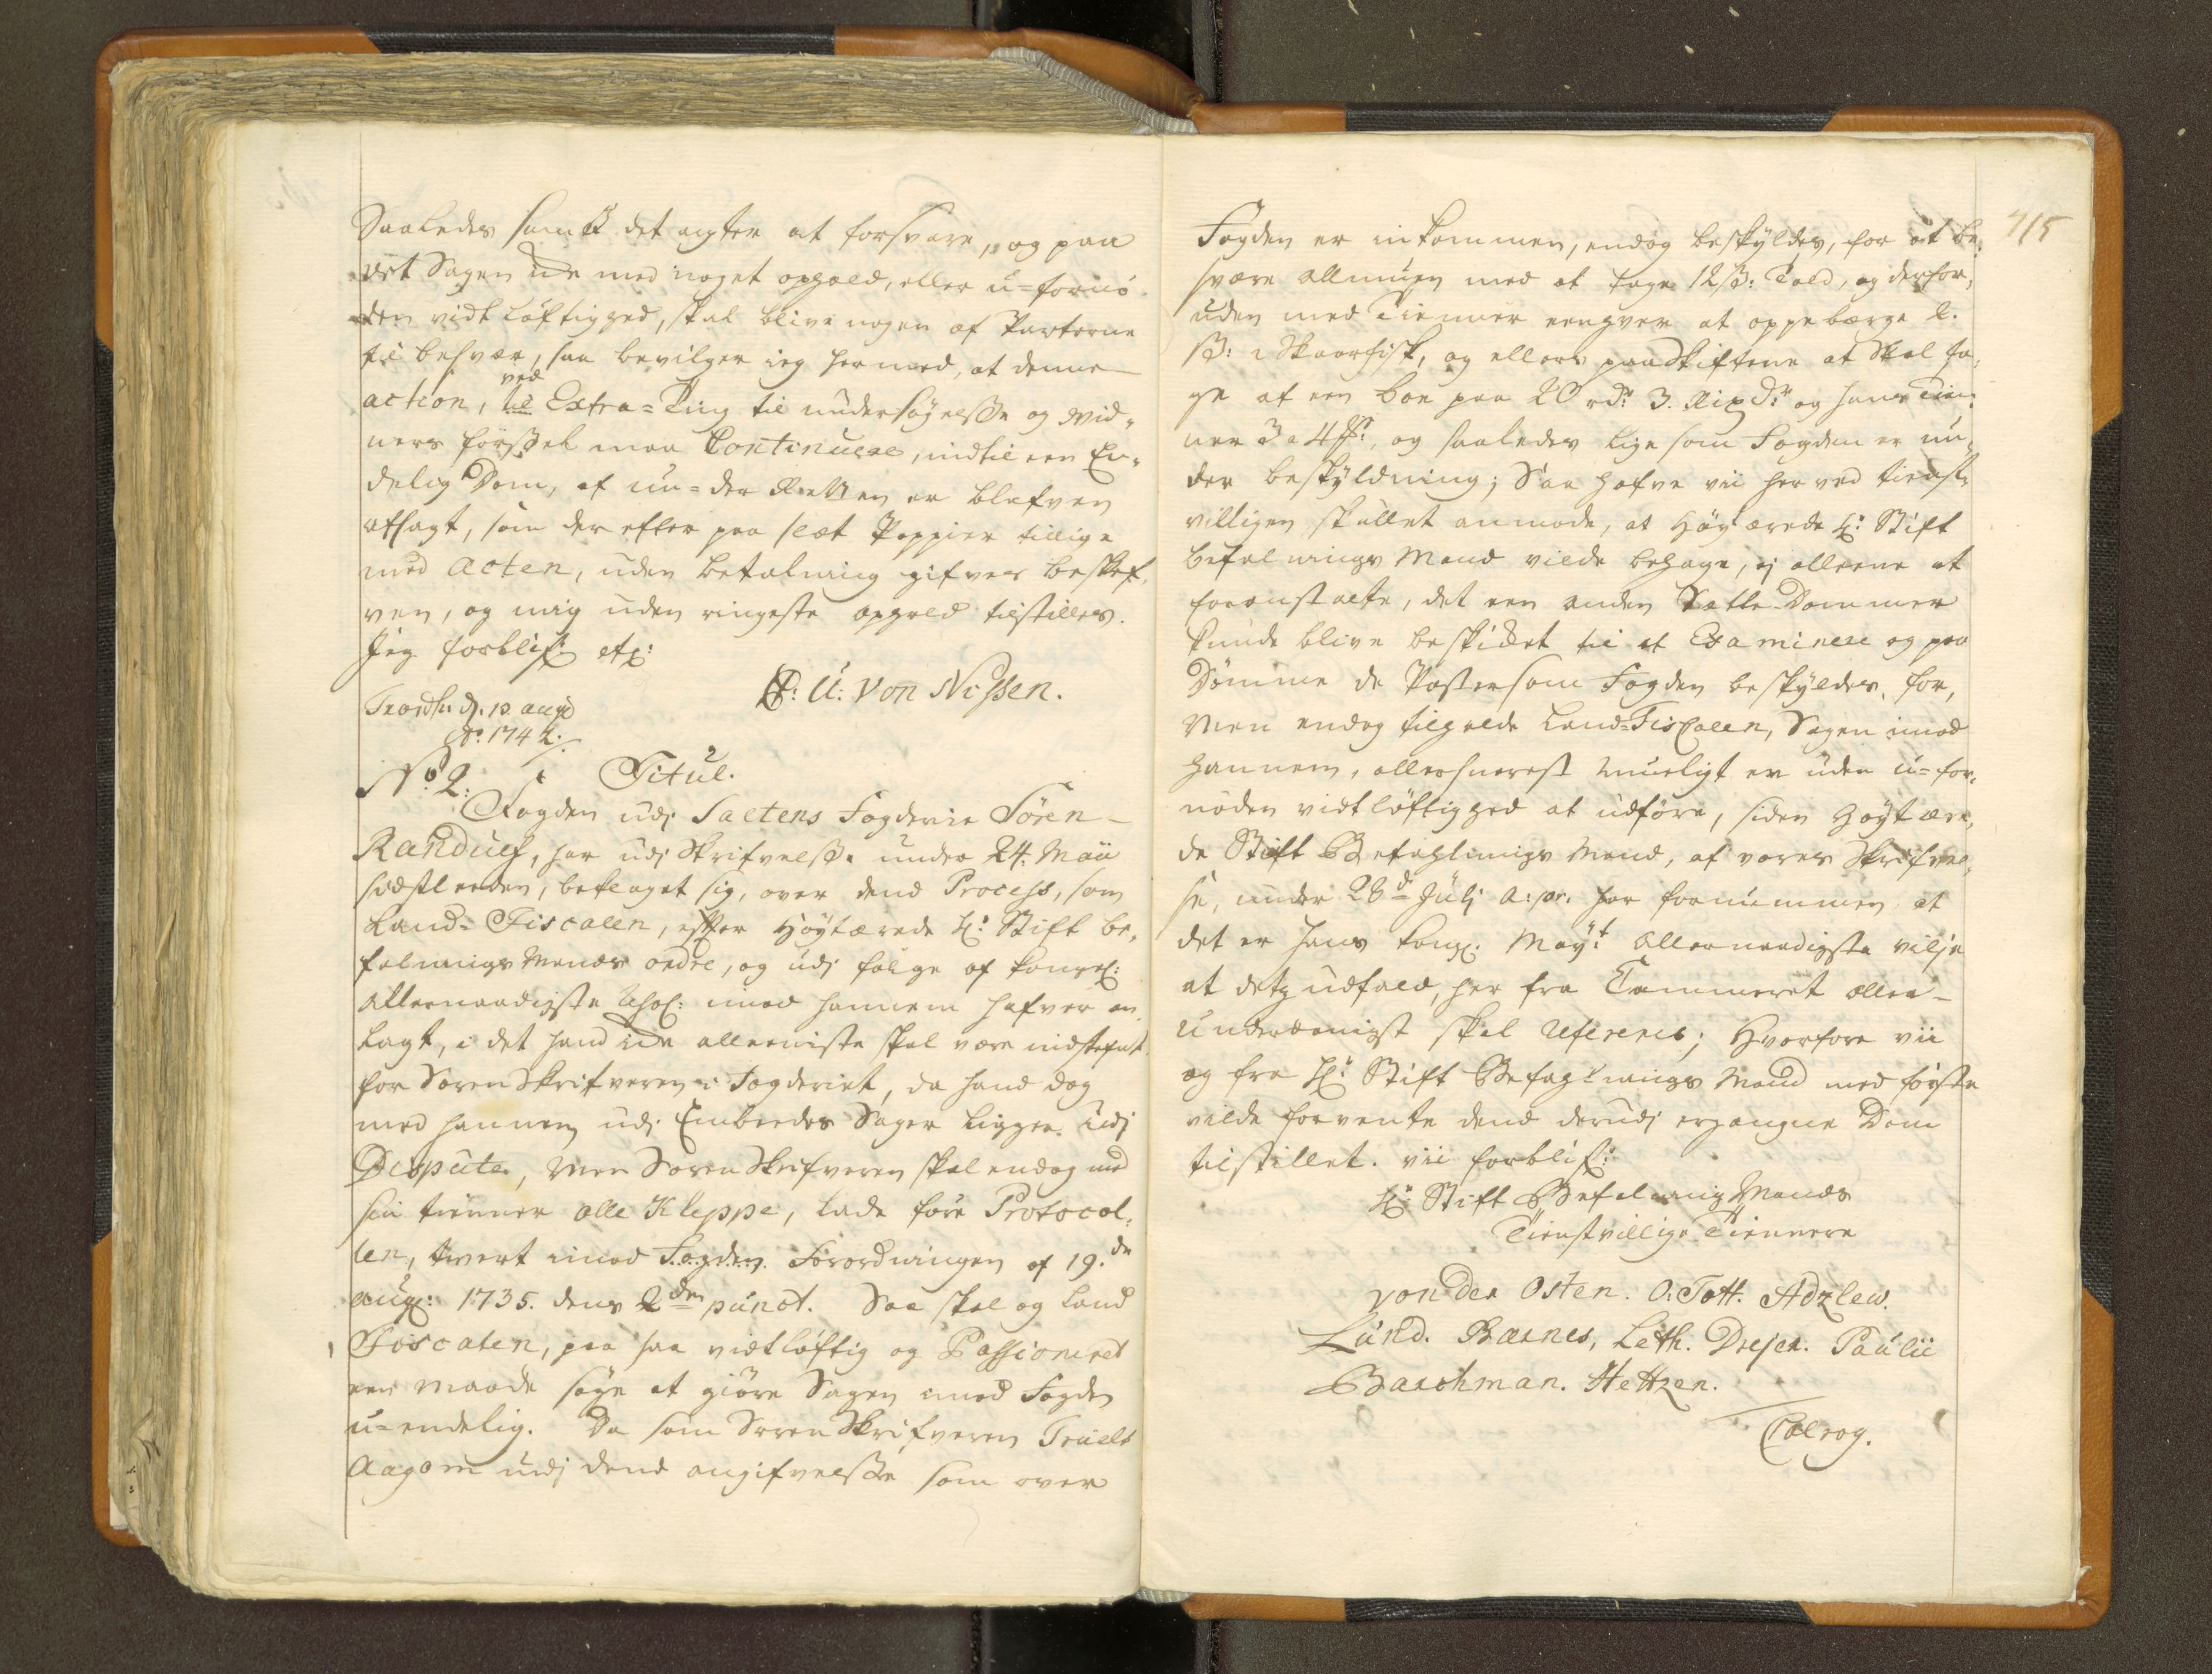 Saaledes som i det agter at forsvare, og paa
det Sagen icke med noget ophold, eller u=fornö
den vidtløftighed, skal blive nogen af Parterne
til besvær, saa bevilger ieg hermed, at denne
action, ved Extra=Ting til undersøgelsse og vid-
ners førssel maa Continuere, indtil een En-
delig Dom, af un=der Retten er blefven
afsagt, som der efter paa slæt Pappiir tillige
med acten, uden betalning gifves beskref-
ven, og mig uden ringeste ophold tilstilles.
Jeg forblif: etc:
U: von Nissen.
Trondh: d. 13 aug
Ao. 1742.
No. 2. Titul.
Fogden udj Saltens Fogderie Sören
Randulf, har udj Skrifvelsse under 24. Maii
sidstleeden, beklaget sig, over dend Process, som
Land=Fiscalen, efter Høytærede Hr: Stift be-
falnings Mands ordre, og udj følge af kongel:
allernaadigste Resol: imod hannem hafver an-
lagt, i det hand icke alleeniste skal være indstefnt
for Sorenskrifveren i Fogderiet, da hand dog
med hannem udj Embeedes Sager ligger udj
Dispute, men Sorenskrifveren skal endog med
sin tienner Olle Kleppe, lade føre Protocol-
len, tvert imod Fogden Forordningen af 19.de
aug: 1735. dens 2den punct. Saa skal og Land
Fiscalen, paa saa vidtløftig og Passioneret
een maade søge at giøre Sagen imod Fogden
u=endelig. Da som Sorenskrifveren Truels
Aagom udj dend angifvelsse som over
715
Fogden er inkommen, endog beskyldes, for at be-
svære Allmuen med at tage 12 ß: Told, og derfor-
uden med Tienner eenhver at oppebærge 2.
ß: Skaarfisk, og ellers paa Skifterne at skal ta-
ge af een boe paa 20 rdr 3. Rixdr og hans Tien-
ner 3 a 4 , og saaledes lige som Fogden er un-
der beskyldning; Saa hafve vii her ved tienst-
villigen skullet anmode, at Høytærede Hr: Stift
befalnings Mand vilde behage, ej alleene at
foranstalte, det een anden Sætte-Dommer
kunde blive beskicket til at Examinere og paa
Dömme de Poster som Fogden beskyldes, for,
Men endog tilholde Land=Fiscalen, Sagen imod
hannem, allersnarest mueligt er uden u=for-
nöden vidtløftighed at udføre, siden Høytære-
de Stift Befahlnings Mand, af vores Skrifvel-
se, under 28d Julj a: pr. har fornummen at
det er hans kongl. Mayt allernaadigste vilje
at detz udfald, her fra Cammeret aller-
underdanigst skal refereres; Hvorfore vii
og fra Hr: Stift Befahlnings Mand med første
vilde forvente dend derudj ergangne Dom
tilstillet. vii forblif:
Hr: Stift Befalning Mands
Tienstvillige Tiennere
von der Osten. O: Tott. Adzlew.
Lund. Barnes, Leth. Dreyer. Paulii
Barchman. Heltzen.
Colrog.